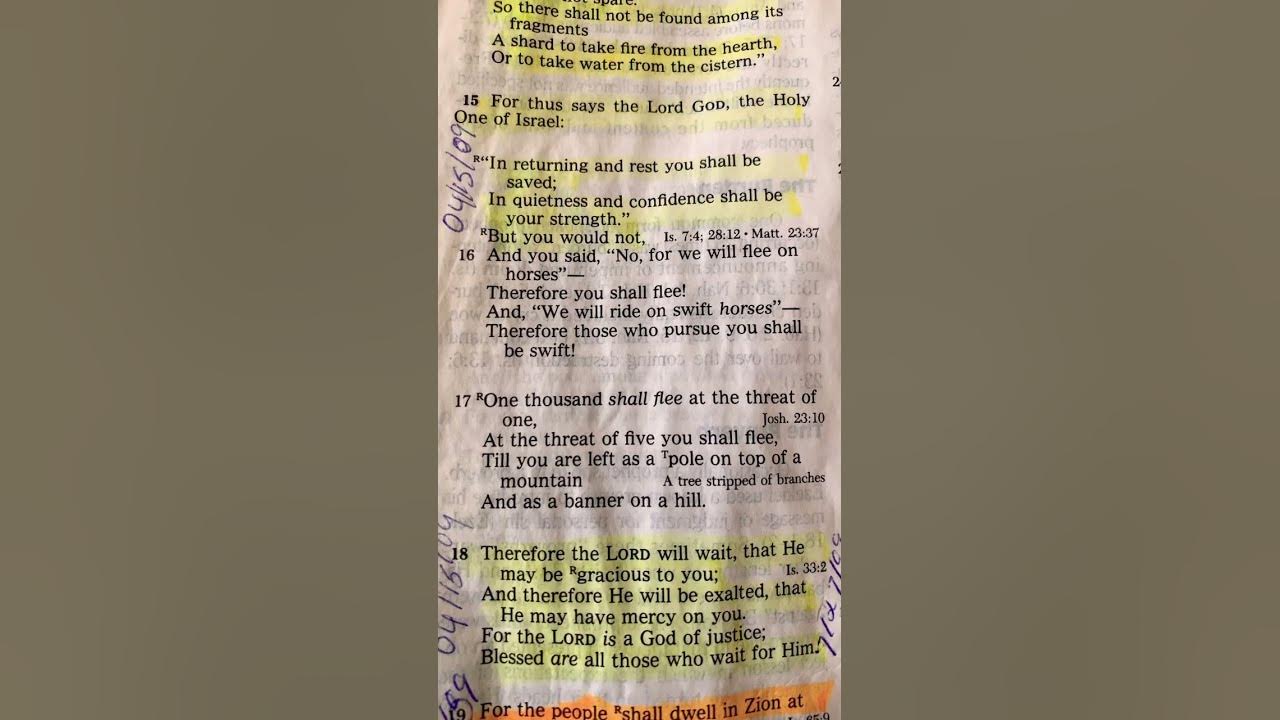 not spare.
So there shall not be found among its
fragments
A shard to take fire from the hearth,
Or to take water from the cistern."
15 For thus says the Lord GOD, the Holy
One of Israel:
04/15/09
R"In returning and rest you shall be
saved;
In quietness and confidence shall be
your strength."
RBut you would not, Is. 7:4; 28:12 • Matt. 23:37
16 And you said, "No, for we will flee on
horses"—
Therefore you shall flee!
And, "We will ride on swift horses"—
Therefore those who pursue you shall
be swift!
17 ROne thousand shall flee at the threat of
one, Josh. 23:10
At the threat of five you shall flee,
Till you are left as a Tpole on top of a
mountain A tree stripped of branches
And as a banner on a hill.
04/15/09
18 Therefore the LORD will wait, that He
may be Rgracious to you; Is. 33:2
And therefore He will be exalted, that
He may have mercy on you.
For the LORD is a God of justice;
Blessed are all those who wait for Him.
19 For the people Rshall dwell in Zion at
65:9